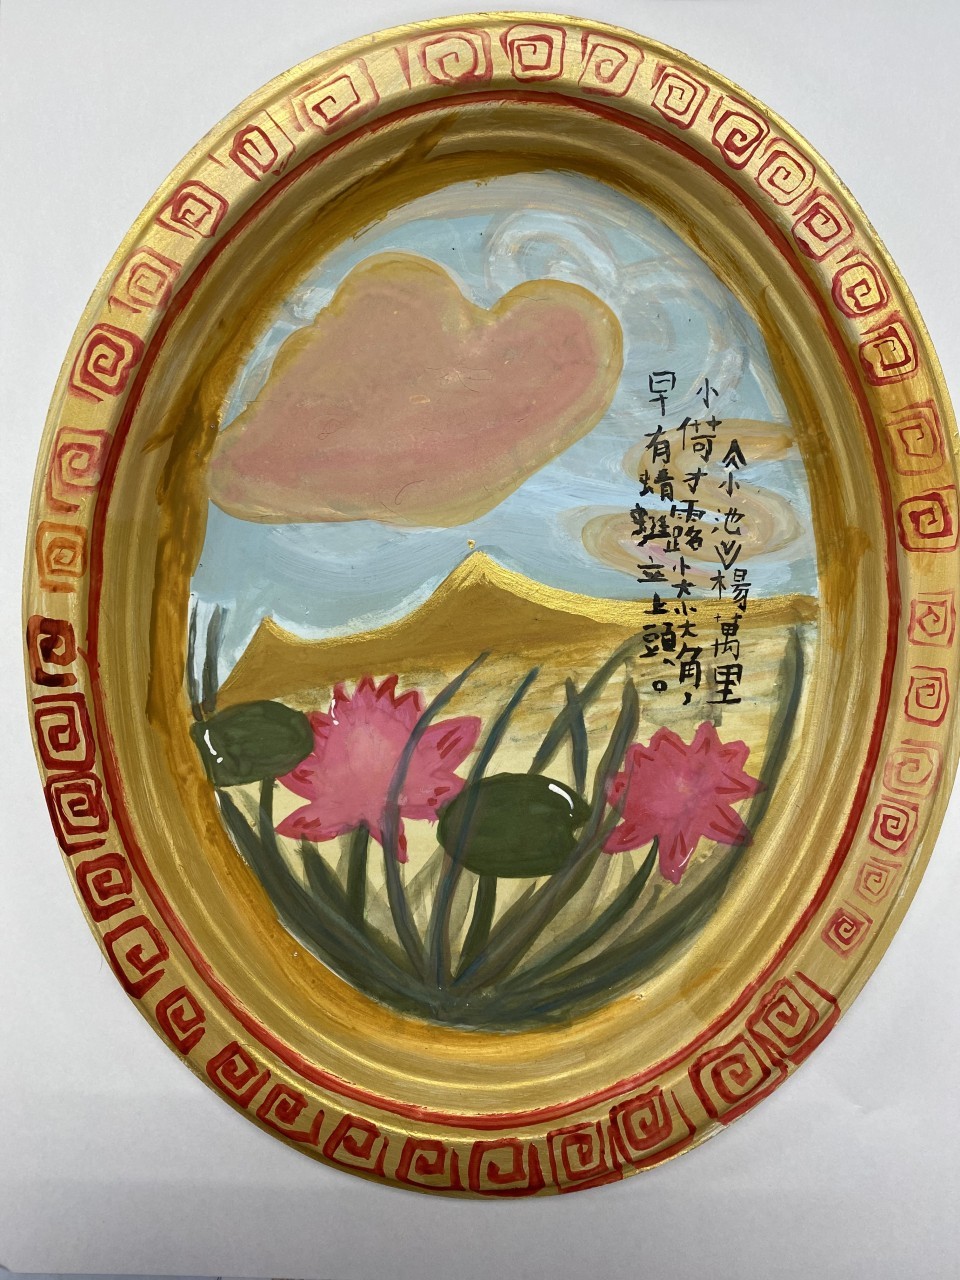 《小池》楊萬里
小荷才露尖尖角,
早有蜻蜓立上頭。